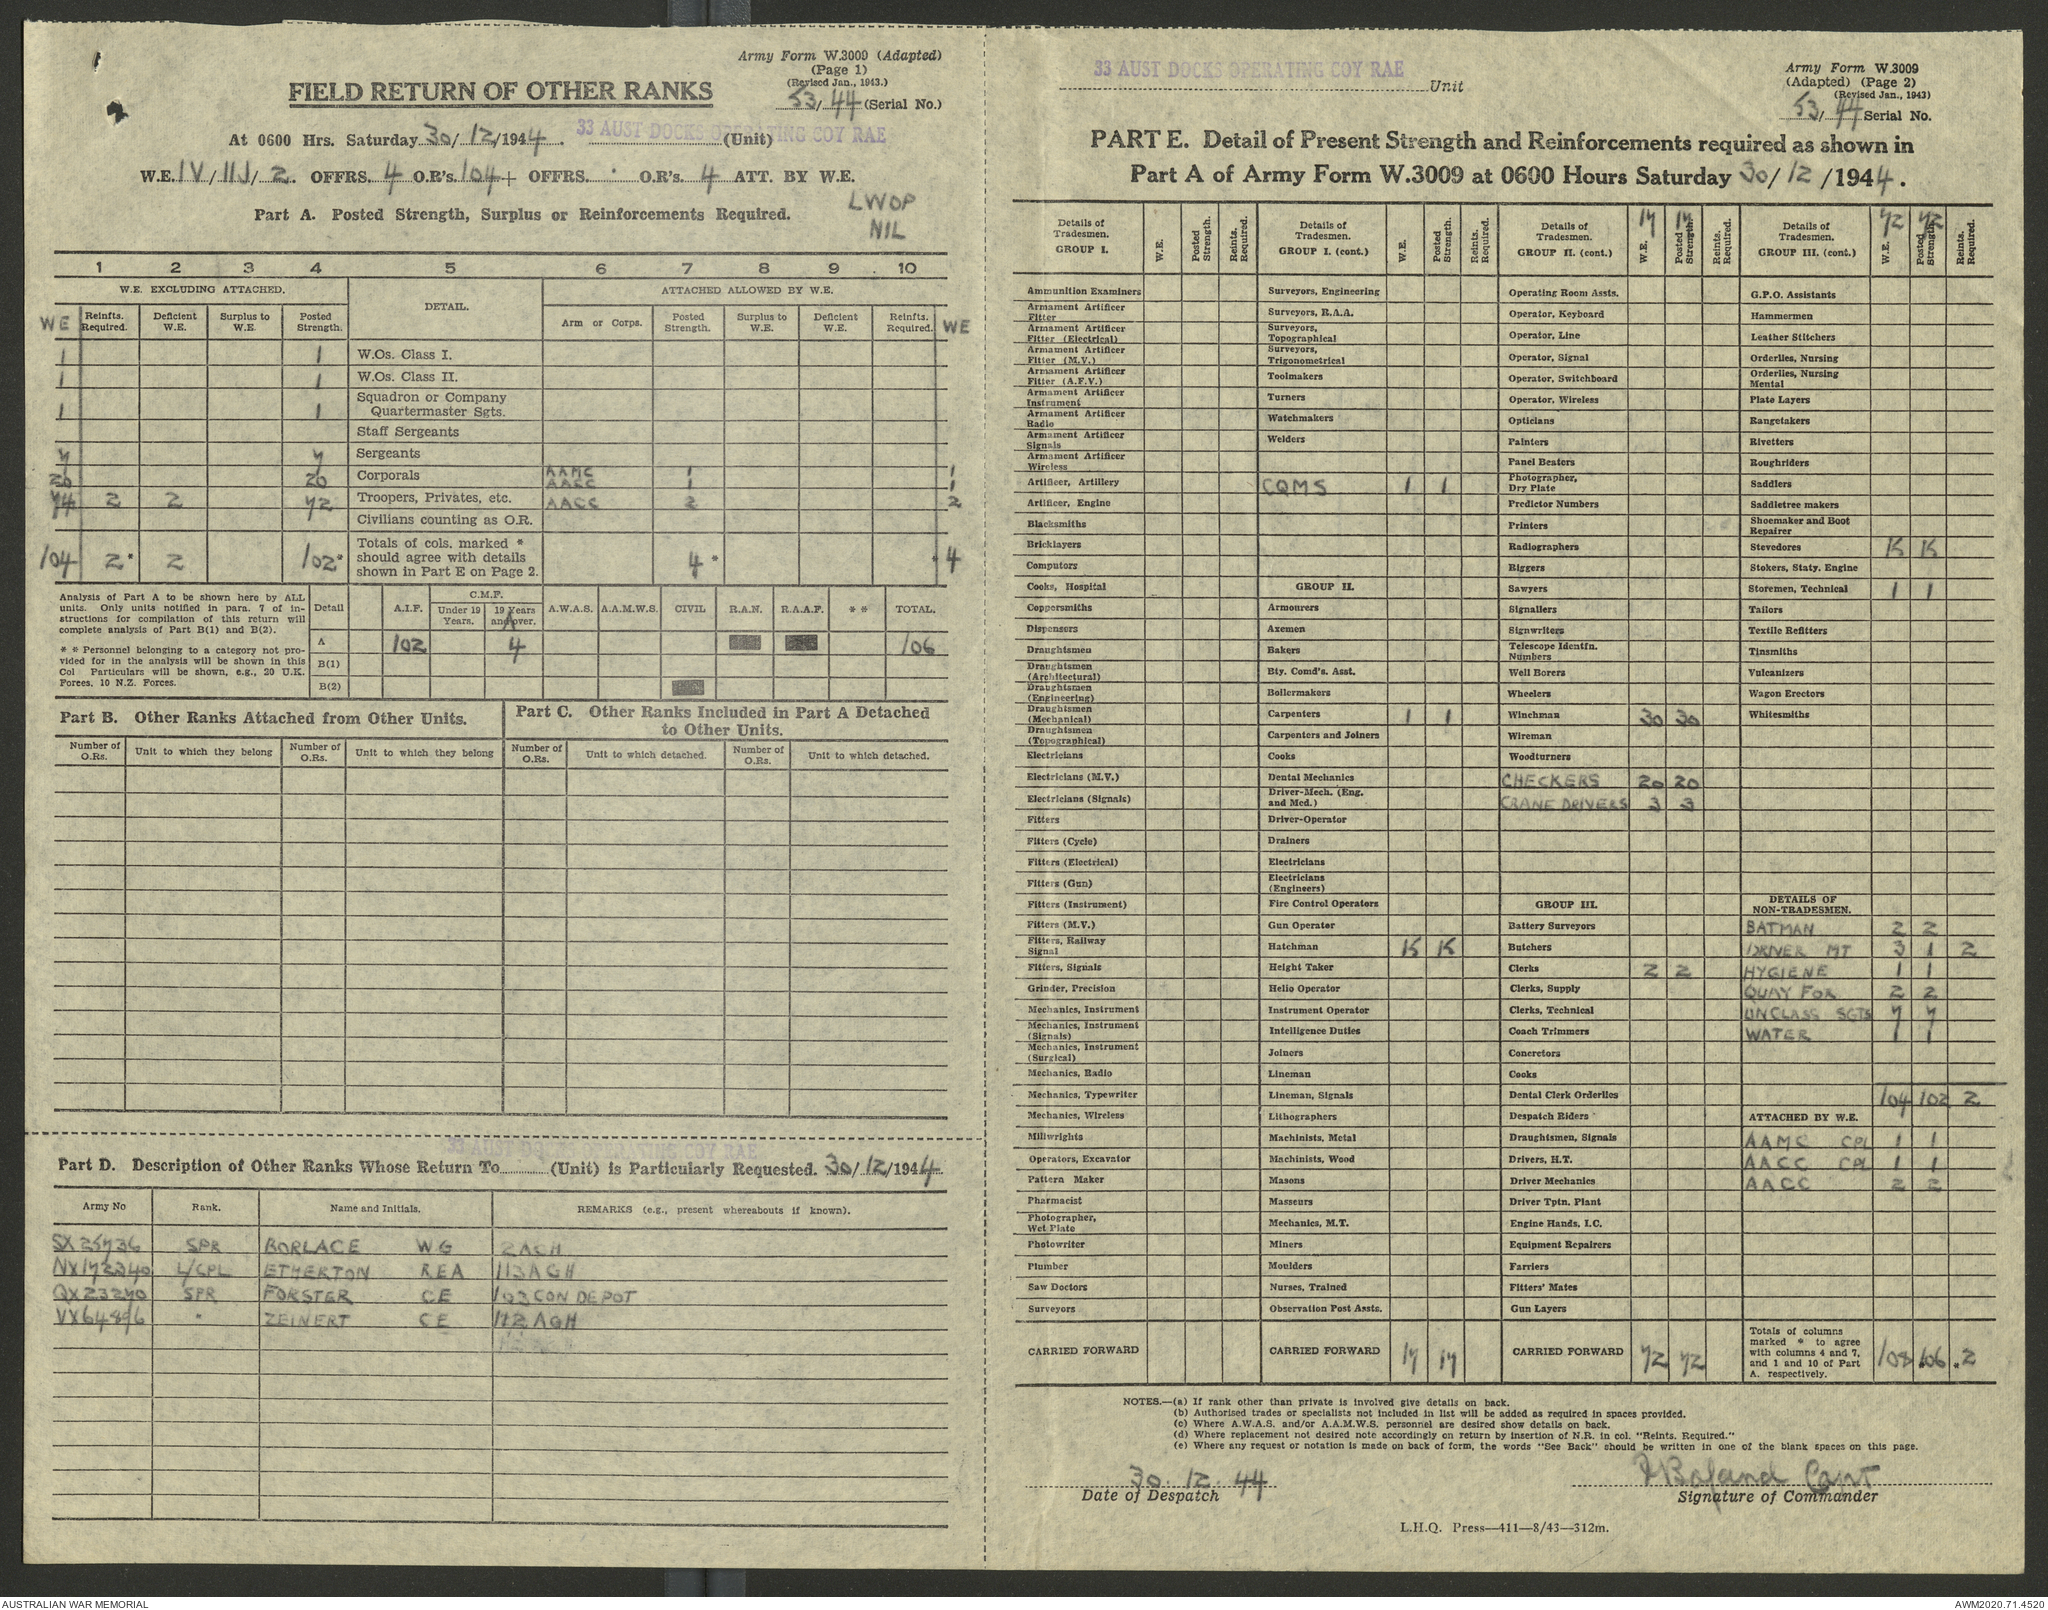 Army Form W.3009 (Adapted)
(Page 1)
(Revised Jan., 1943.)
FIELD RETURN OF OTHER RANKS
53/44 (Serial No.)
At 0600 Hrs. Saturday 30/12/1944. 33 AUST DOCKS OPERATING COY RAE (Unit)
W.E. IV/IIJ/2. OFFRS. 4 O.R's. 104+ OFFRS. · O.R's. 4 ATT. BY W.E.
Part A. Posted Strength, Surplus or Reinforcements Required.
LWOP
NIL
1 2 3 4 5 6 7 8 9 10
W.E. EXCLUDING ATTACHED. DETAIL. ATTACHED ALLOWED BY W.E.
WE Reinfts. Required. Deficient W.E. Surplus to W.E. Posted Strength. Arm or Corps. Posted Strength. Surplus to W.E. Deficient W.E. Reinfts. Required. WE
1 1 W.Os. Class I.
1 1 W.Os. Class II.
1 1 Squadron or Company Quartermaster Sgts.
Staff Sergeants
7 7 Sergeants
20 20 Corporals AAMC 1 1
AACC 1 1
74 2 2 72 Troopers, Privates, etc. AACC 2 2
Civilians counting as O.R.
104 2* 2 102* Totals of cols. marked * should agree with details shown in Part E on Page 2. 4* * 4
Analysis of Part A to be shown here by ALL units. Only units notified in para. 7 of instructions for compilation of this return will complete analysis of Part B(1) and B(2).
** Personnel belonging to a category not provided for in the analysis will be shown in this Col Particulars will be shown, e.g., 20 U.K. Forces, 10 N.Z. Forces.
Detail A.I.F. C.M.F. Under 19 Years. 19 Years and over. A.W.A.S. A.A.M.W.S. CIVIL R.A.N. R.A.A.F. ** TOTAL.
A 102 4 106
B(1)
B(2)
Part B. Other Ranks Attached from Other Units.
Part C. Other Ranks Included in Part A Detached to Other Units.
Number of O.Rs. Unit to which they belong Number of O.Rs. Unit to which they belong Number of O.Rs. Unit to which detached. Number of O.Rs. Unit to which detached.
Part D. Description of Other Ranks Whose Return To (Unit) is Particularly Requested. 30/12/1944.
Army No Rank. Name and Initials. REMARKS (e.g., present whereabouts if known).
SX25736 SPR BORLACE WG 2ACH
NX172340 L/CPL ETHERTON REA 113AGH
QX23270 SPR FORSTER CE 103 CON DEPOT
VX64896 " ZEINERT CE 112 AGH
33 AUST DOCKS OPERATING COY RAE Unit
Army Form W.3009
(Adapted) (Page 2)
(Revised Jan., 1943)
53/44 Serial No.
PART E. Detail of Present Strength and Reinforcements required as shown in
Part A of Army Form W.3009 at 0600 Hours Saturday 30/12/1944.
Details of Tradesmen. GROUP I. W.E. Posted Strength. Reints. Required.
Ammunition Examiners
Armament Artificer Fitter
Armament Artificer Fitter (Electrical)
Armament Artificer Fitter (M.V.)
Armament Artificer Fitter (A.F.V.)
Armament Artificer Instrument
Armament Artificer Radio
Armament Artificer Signals
Armament Artificer Wireless
Artificer, Artillery
Artificer, Engine
Blacksmiths
Bricklayers
Computors
Cooks, Hospital
Coppersmiths
Dispensers
Draughtsmen
Draughtsmen (Architectural)
Draughtsmen (Engineering)
Draughtsmen (Mechanical)
Draughtsmen (Topographical)
Electricians
Electricians (M.V.)
Electricians (Signals)
Fitters
Fitters (Cycle)
Fitters (Electrical)
Fitters (Gun)
Fitters (Instrument)
Fitters (M.V.)
Fitters, Railway Signal
Fitters, Signals
Grinder, Precision
Mechanics, Instrument
Mechanics, Instrument (Signals)
Mechanics, Instrument (Surgical)
Mechanics, Radio
Mechanics, Typewriter
Mechanics, Wireless
Millwrights
Operators, Excavator
Pattern Maker
Pharmacist
Photographer, Wet Plate
Photowriter
Plumber
Saw Doctors
Surveyors
CARRIED FORWARD
Details of Tradesmen. GROUP I. (cont.) W.E. Posted Strength. Reints. Required.
Surveyors, Engineering
Surveyors, R.A.A.
Surveyors, Topographical
Surveyors, Trigonometrical
Toolmakers
Turners
Watchmakers
Welders
CQMS 1 1
GROUP II.
Armourers
Axemen
Bakers
Bty. Comd's. Asst.
Boilermakers
Carpenters 1 1
Carpenters and Joiners
Cooks
Dental Mechanics
Driver-Mech. (Eng. and Med.)
Driver-Operator
Drainers
Electricians
Electricians (Engineers)
Fire Control Operators
Gun Operator
Hatchman 15 15
Height Taker
Helio Operator
Instrument Operator
Intelligence Duties
Joiners
Lineman
Lineman, Signals
Lithographers
Machinists, Metal
Machinists, Wood
Masons
Masseurs
Mechanics, M.T.
Miners
Moulders
Nurses, Trained
Observation Post Assts.
CARRIED FORWARD 17 17
Details of Tradesmen. GROUP II. (cont.) 17 W.E. 17 Posted Strength. Reints. Required.
Operating Room Assts.
Operator, Keyboard
Operator, Line
Operator, Signal
Operator, Switchboard
Operator, Wireless
Opticians
Painters
Panel Beaters
Photographer, Dry Plate
Predictor Numbers
Printers
Radiographers
Riggers
Sawyers
Signallers
Signwriters
Telescope Identfn. Numbers
Well Borers
Wheelers
Winchman 30 30
Wireman
Woodturners
CHECKERS 20 20
CRANE DRIVERS 3 3
GROUP III.
Battery Surveyors
Butchers
Clerks 2 2
Clerks, Supply
Clerks, Technical
Coach Trimmers
Concretors
Cooks
Dental Clerk Orderlies
Despatch Riders
Draughtsmen, Signals
Drivers, H.T.
Driver Mechanics
Driver Tptn. Plant
Engine Hands, I.C.
Equipment Repairers
Farriers
Fitters' Mates
Gun Layers
CARRIED FORWARD 72 72
Details of Tradesmen. GROUP III. (cont.) 72 W.E. 72 Posted Strength. Reints. Required.
G.P.O. Assistants
Hammermen
Leather Stitchers
Orderlies, Nursing
Orderlies, Nursing Mental
Plate Layers
Rangetakers
Rivetters
Roughriders
Saddlers
Saddletree makers
Shoemaker and Boot Repairer
Stevedores 15 15
Stokers, Staty. Engine
Storemen, Technical 1 1
Tailors
Textile Refitters
Tinsmiths
Vulcanizers
Wagon Erectors
Whitesmiths
DETAILS OF NON-TRADESMEN.
BATMAN 2 2
DRIVER MT 3 1 2
HYGIENE 1 1
QUAY FOR 2 2
UNCLASS SGTS 7 7
WATER 1 1
104 102 2
ATTACHED BY W.E.
AAMC CPL 1 1
AACC CPL 1 1
AACC 2 2
Totals of columns marked * to agree with columns 4 and 7, and 1 and 10 of Part A. respectively. 108 *106 *2
NOTES.—(a) If rank other than private is involved give details on back.
(b) Authorised trades or specialists not included in list will be added as required in spaces provided.
(c) Where A.W.A.S. and/or A.A.M.W.S. personnel are desired show details on back.
(d) Where replacement not desired note accordingly on return by insertion of N.R. in col. "Reints. Required."
(e) Where any request or notation is made on back of form, the words "See Back" should be written in one of the blank spaces on this page.
30.12.44
Date of Despatch
Boland Capt
Signature of Commander
L.H.Q. Press—411—8/43—312m.
AUSTRALIAN WAR MEMORIAL
AWM2020.71.4520